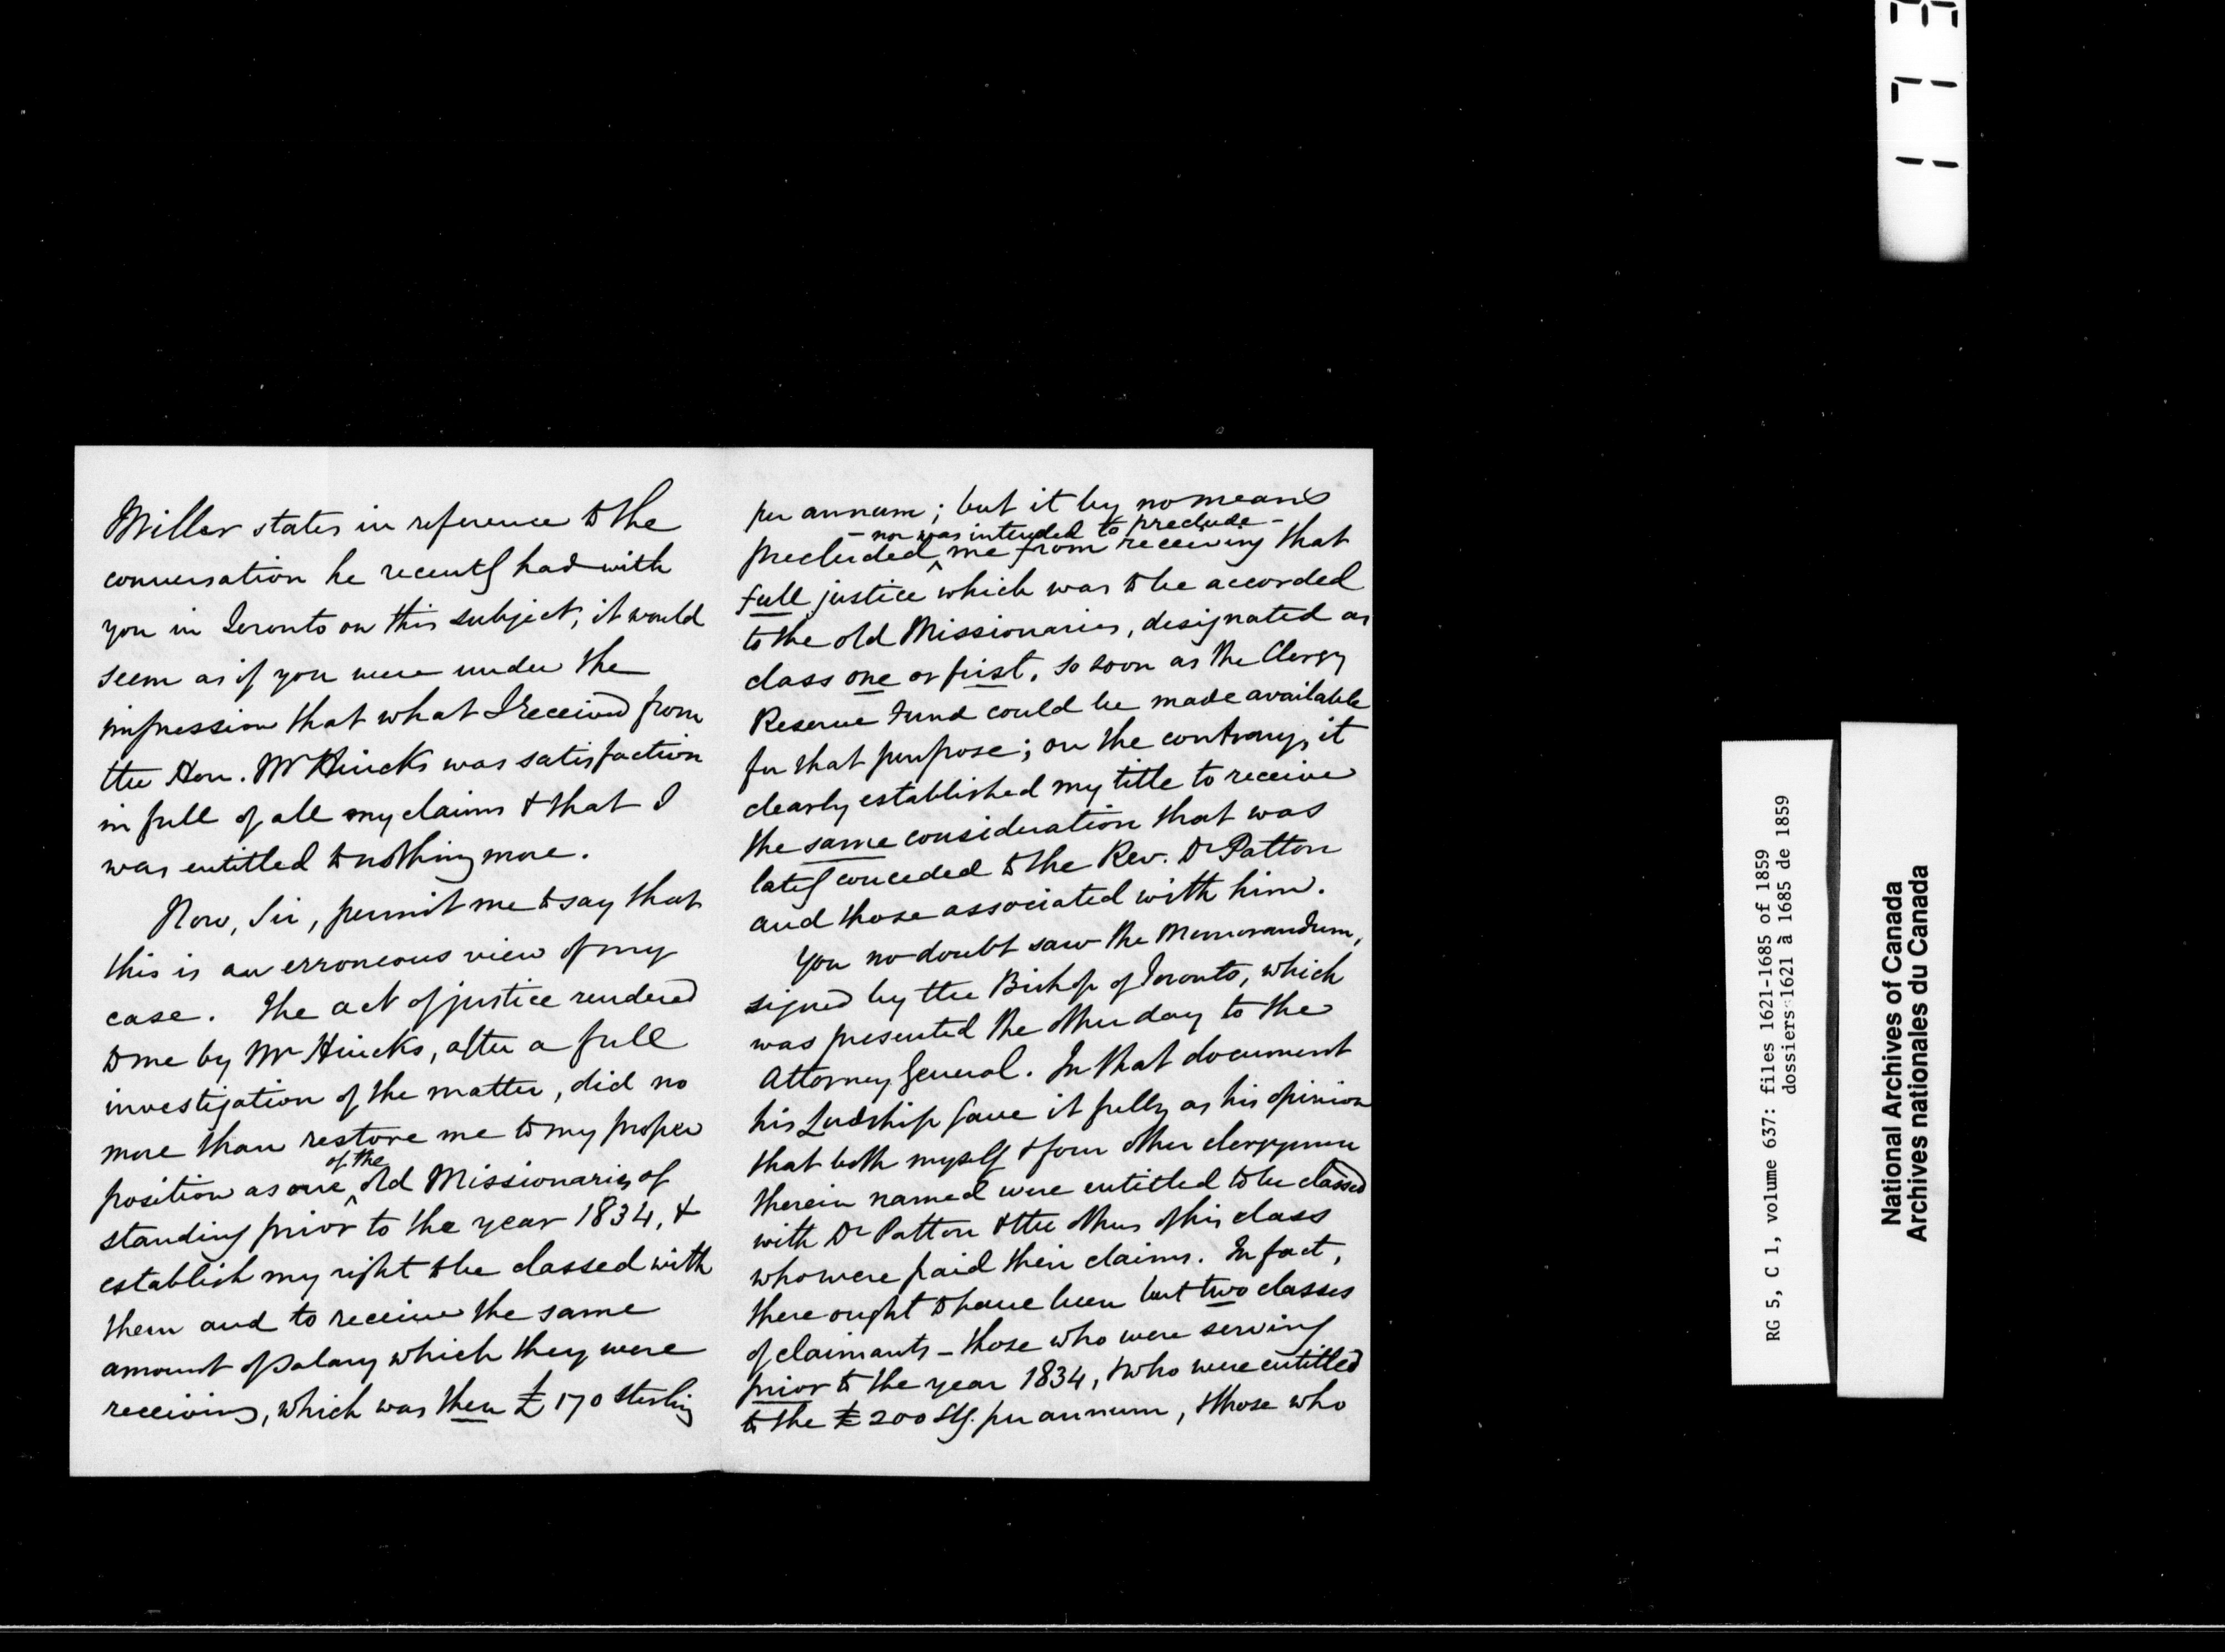 Miller states in reference to the
conversation he recently had with
you in Toronto on this subject, it would
seem as if you were under the
impression that what I received from
the Hon. Mr Hincks was satisfaction
in full of all my claims & that I
was entitled to nothing more.
Now, Sir, permit me to say that
this is an erroneous view of my
case. The act of justice rendered
to me by Mr Hincks, after a full
investigation of the matter, did no
more than restore me to my proper
of the
position as one ^ old Missionaries of
standing prior to the year 1834, &
establish my right to be classed with
them and to receive the same
amount of salary which they were
receiving, which was then £170 sterling
per annum; but it by no means
- nor was intended to preclude -
precluded ^ me from receiving that
full justice which was to be accorded
to the old Missionaries, designated as
class one or first, so soon as the Clergy
Reserve Fund could be made available
for that purpose; on the contrary, it
clearly established my title to receive
the same consideration that was
lately conceded to the Rev. Dr Patton
and those associated with him.
You no doubt saw the Memorandum,
signed by the Bishop of Toronto, which
was presented the other day to the
Attorney General. In that document
his Lordship gave it fully as his opinion
that both myself & four other clergymen
therein named were entitled to be classed
with Dr Patton & the others of his class
who were paid their claims. In fact,
there ought to have been but two classes
of claimants - those who were serving
prior to the year 1834, & who were entitled
to the £200 Stg. per annum, & those who
RG 5, C 1, volume 637: files 1621-1685 of 1859
dossiers 1621 à 1685 de 1859
National Archives of Canada
Archives nationales du Canada